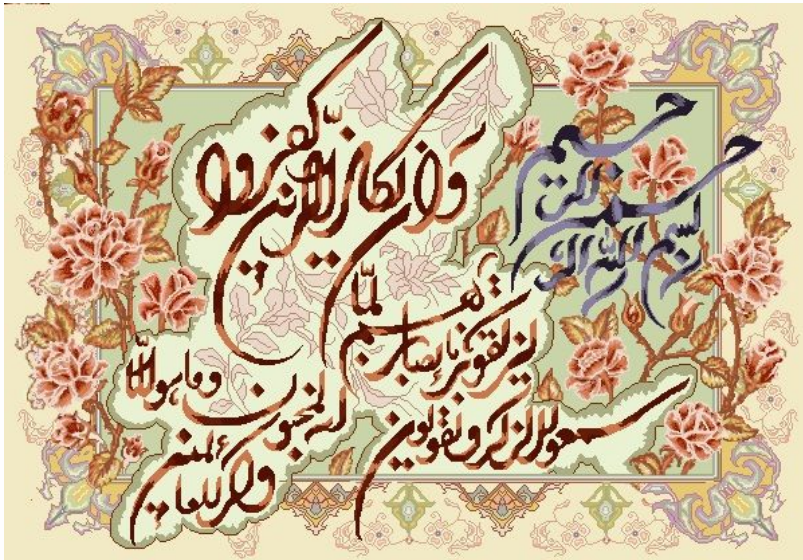 بسم الله الرحمن الرحیم
وَان یکاد الّذین کفروا
لیزلقونک بابصارهم لمّا
سمعوا الذکر و یقولون
انه لمجنون و ما هو الّا
ذکر للعالمین